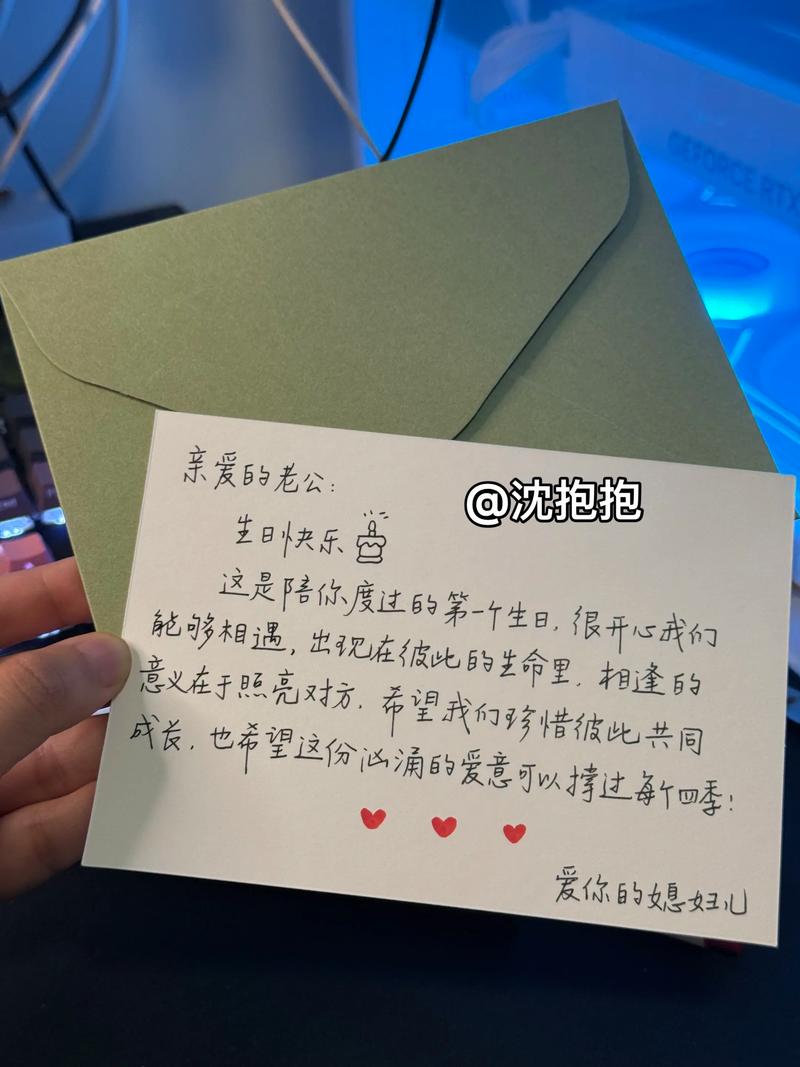 GEFORCE RTX
亲爱的老公：
@沈抱抱
生日快乐
这是陪你度过的第一个生日，很开心我们
能够相遇，出现在彼此的生命里，相逢的
意义在于照亮对方，希望我们珍惜彼此共同
成长，也希望这份汹涌的爱意可以撑过每个四季！
爱你的媳妇儿